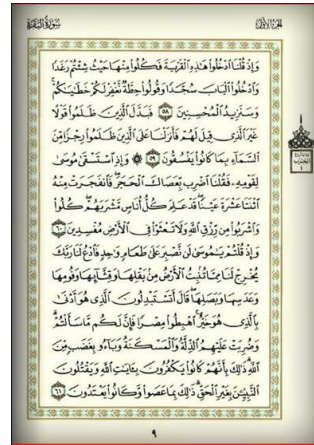 الجزء الأول
سورة البقرة
وَإِذْ قُلْنَا ادْخُلُوا هَٰذِهِ الْقَرْيَةَ فَكُلُوا مِنْهَا حَيْثُ شِئْتُمْ رَغَدًا
وَادْخُلُوا الْبَابَ سُجَّدًا وَقُولُوا حِطَّةٌ نَغْفِرْ لَكُمْ خَطَايَاكُمْ ۚ
وَسَنَزِيدُ الْمُحْسِنِينَ ٥٨ فَبَدَّلَ الَّذِينَ ظَلَمُوا قَوْلًا
غَيْرَ الَّذِي قِيلَ لَهُمْ فَأَنْزَلْنَا عَلَى الَّذِينَ ظَلَمُوا رِجْزًا مِنَ
السَّمَاءِ بِمَا كَانُوا يَفْسُقُونَ ٥٩ ۞ وَإِذِ اسْتَسْقَىٰ مُوسَىٰ
لِقَوْمِهِ فَقُلْنَا اضْرِبْ بِعَصَاكَ الْحَجَرَ ۖ فَانْفَجَرَتْ مِنْهُ
اثْنَتَا عَشْرَةَ عَيْنًا ۖ قَدْ عَلِمَ كُلُّ أُنَاسٍ مَشْرَبَهُمْ ۖ كُلُوا
وَاشْرَبُوا مِنْ رِزْقِ اللَّهِ وَلَا تَعْثَوْا فِي الْأَرْضِ مُفْسِدِينَ ٦٠
وَإِذْ قُلْتُمْ يَا مُوسَىٰ لَنْ نَصْبِرَ عَلَىٰ طَعَامٍ وَاحِدٍ فَادْعُ لَنَا رَبَّكَ
يُخْرِجْ لَنَا مِمَّا تُنْبِتُ الْأَرْضُ مِنْ بَقْلِهَا وَقِثَّائِهَا وَفُومِهَا
وَعَدَسِهَا وَبَصَلِهَا ۖ قَالَ أَتَسْتَبْدِلُونَ الَّذِي هُوَ أَدْنَىٰ
بِالَّذِي هُوَ خَيْرٌ ۚ اهْبِطُوا مِصْرًا فَإِنَّ لَكُمْ مَا سَأَلْتُمْ ۗ
وَضُرِبَتْ عَلَيْهِمُ الذِّلَّةُ وَالْمَسْكَنَةُ وَبَاءُوا بِغَضَبٍ مِنَ
اللَّهِ ۗ ذَٰلِكَ بِأَنَّهُمْ كَانُوا يَكْفُرُونَ بِآيَاتِ اللَّهِ وَيَقْتُلُونَ
النَّبِيِّينَ بِغَيْرِ الْحَقِّ ۗ ذَٰلِكَ بِمَا عَصَوْا وَكَانُوا يَعْتَدُونَ ٦١
٩